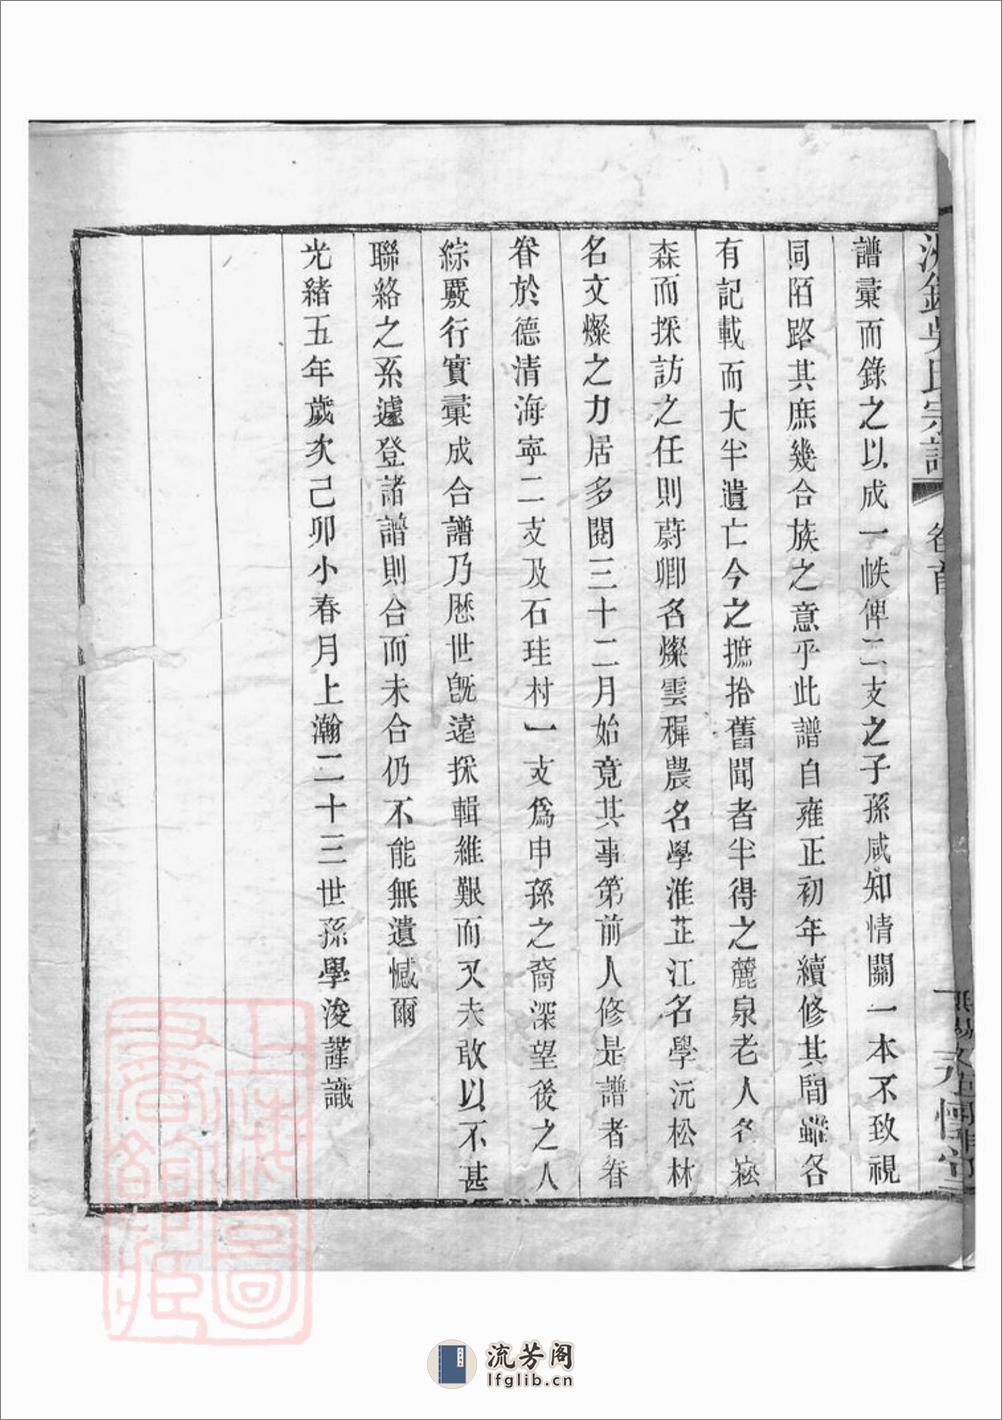 吳氏宗譜
卷首
譜彚而錄之以成一帙俾二支之子孫咸知情關一本不致視
同陌路其庶幾合族之意乎此譜自雍正初年續修其間雖各
有記載而大半遺亡今之摭拾舊聞者半得之麓泉老人名崧
森而採訪之任則蔚卿名燦雲穉農名學淮芷江名學沅松林
名文燦之力居多閱三十二月始竟其事第前人修是譜者眷
眷於德清海寧二支及石珪村一支爲申孫之裔深望後之人
綜覈行實彚成合譜乃歷世旣遠採輯維艱而又未敢以不甚
聯絡之系遽登諸譜則合而未合仍不能無遺憾爾
光緒五年歲次己卯小春月上瀚二十三世孫學浚謹識
上海圖書館藏
流芳阁
lfglib.cn